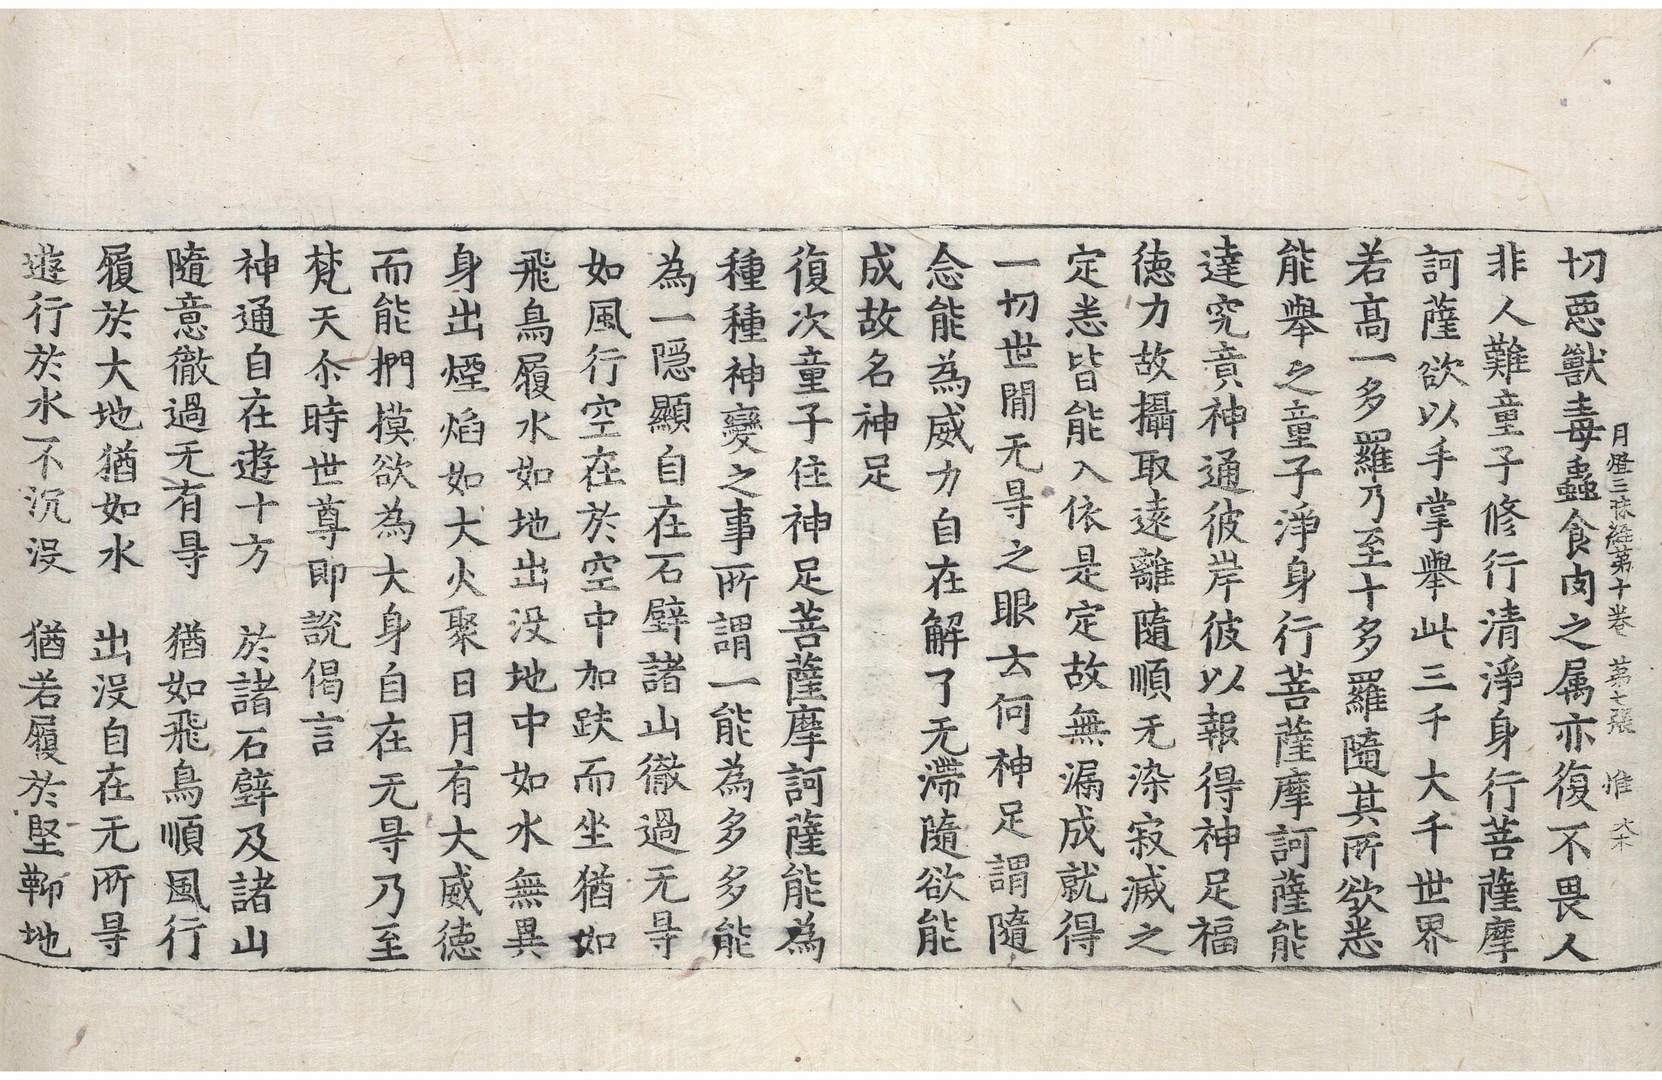 月燈三昧経第十卷 第七張 惟 大木
切惡獸毒蟲食肉之属亦復不畏人
非人難童子修行清淨身行菩薩摩
訶薩欲以手掌舉此三千大千世界
若髙一多羅乃至十多羅隨其所欲悉
能舉之童子淨身行菩薩摩訶薩能
達究竟神通彼岸彼以報得神足福
徳力故攝取遠離隨順无染寂滅之
定悉皆能入依是定故無漏成就得
一切世間无㝵之眼云何神足謂隨
念能為威力自在解了无滯隨欲能
成故名神足
復次童子住神足菩薩摩訶薩能為
種種神變之事所謂一能為多多能
為一隱顯自在石壁諸山徹過无㝵
如風行空在於空中加趺而坐猶如
飛鳥履水如地出没地中如水無異
身出煙焰如大火聚日月有大威徳
而能捫摸欲為大身自在无㝵乃至
梵天尒時世尊即說偈言
神通自在遊十方 於諸石壁及諸山
隨意徹過无有㝵 猶如飛鳥順風行
履於大地猶如水 出没自在无所㝵
遊行於水不沉没 猶若履於堅鞕地